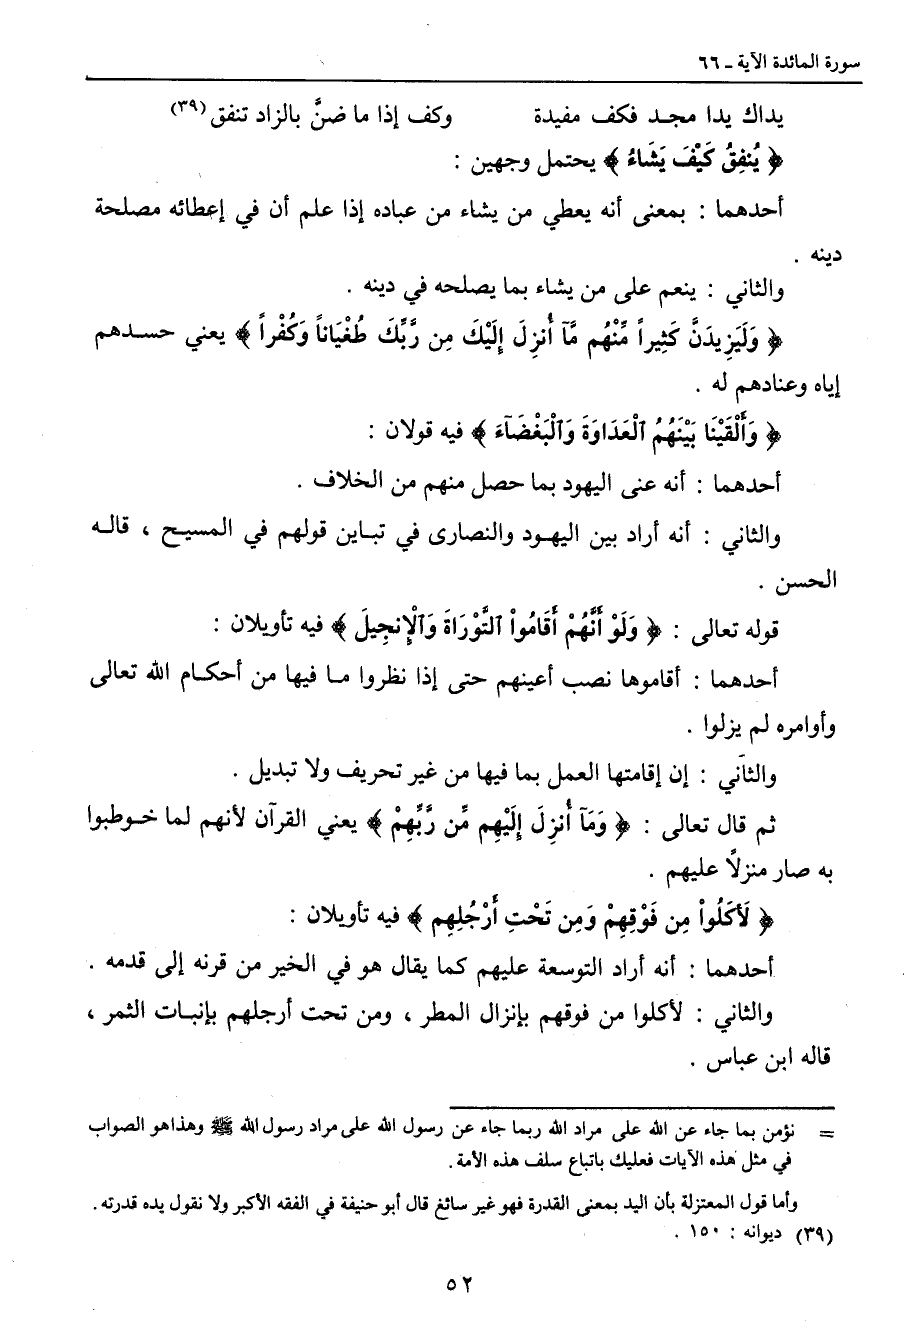 سورة المائدة الآية ـ ٦٦
يداك يدا مجـد فكف مفيدة وكف إذا ما ضنَّ بالزاد تنفق (٣٩)
﴿ يُنفِقُ كَيْفَ يَشَاءُ ﴾ يحتمل وجهين :
أحدهما : بمعنى أنه يعطي من يشاء من عباده إذا علم أن في إعطائه مصلحة
دينه .
والثاني : ينعم على من يشاء بما يصلحه في دينه .
﴿ وَلَيَزِيدَنَّ كَثِيراً مِّنْهُم مَّآ أُنزِلَ إِلَيْكَ مِن رَّبِّكَ طُغْيَاناً وَكُفْراً ﴾ يعني حسـدهم
إياه وعنادهم له .
﴿ وَأَلْقَيْنَا بَيْنَهُمُ ٱلْعَدَاوَةَ وَٱلْبَغْضَآءَ ﴾ فيه قولان :
أحدهما : أنه عنى اليهود بما حصل منهم من الخلاف .
والثاني : أنه أراد بين اليهـود والنصارى في تبـاين قولهم في المسيـح ، قالـه
الحسن .
قوله تعالى : ﴿ وَلَوْ أَنَّهُمْ أَقَامُواْ ٱلتَّوْرَاةَ وَٱلْإِنجِيلَ ﴾ فيه تأويلان :
أحدهما : أقاموها نصب أعينهم حتى إذا نظروا مـا فيها من أحكـام الله تعالى
وأوامره لم يزلوا .
والثاني : إن إقامتها العمل بما فيها من غير تحريف ولا تبديل .
ثم قال تعالى : ﴿ وَمَآ أُنزِلَ إِلَيْهِم مِّن رَّبِّهِمْ ﴾ يعني القرآن لأنهم لما خـوطبوا
به صار منزلاً عليهم .
﴿ لَأَكَلُواْ مِن فَوْقِهِمْ وَمِن تَحْتِ أَرْجُلِهِم ﴾ فيه تأويلان :
أحدهما : أنه أراد التوسعة عليهم كما يقال هو في الخير من قرنه إلى قدمه .
والثاني : لأكلوا من فوقهم بإنزال المطر ، ومن تحت أرجلهم بإنبـات الثمر ،
قاله ابن عباس .
= نؤمن بما جاء عن الله على مراد الله ربما جاء عن رسول الله على مراد رسول الله ﷺ وهذا هو الصواب
في مثل هذه الآيات فعليك باتباع سلف هذه الأمة .
وأما قول المعتزلة بأن اليد بمعنى القدرة فهو غير سائغ قال أبو حنيفة في الفقه الأكبر ولا نقول يده قدرته .
(٣٩) ديوانه : ١٥٠ .
٥٢